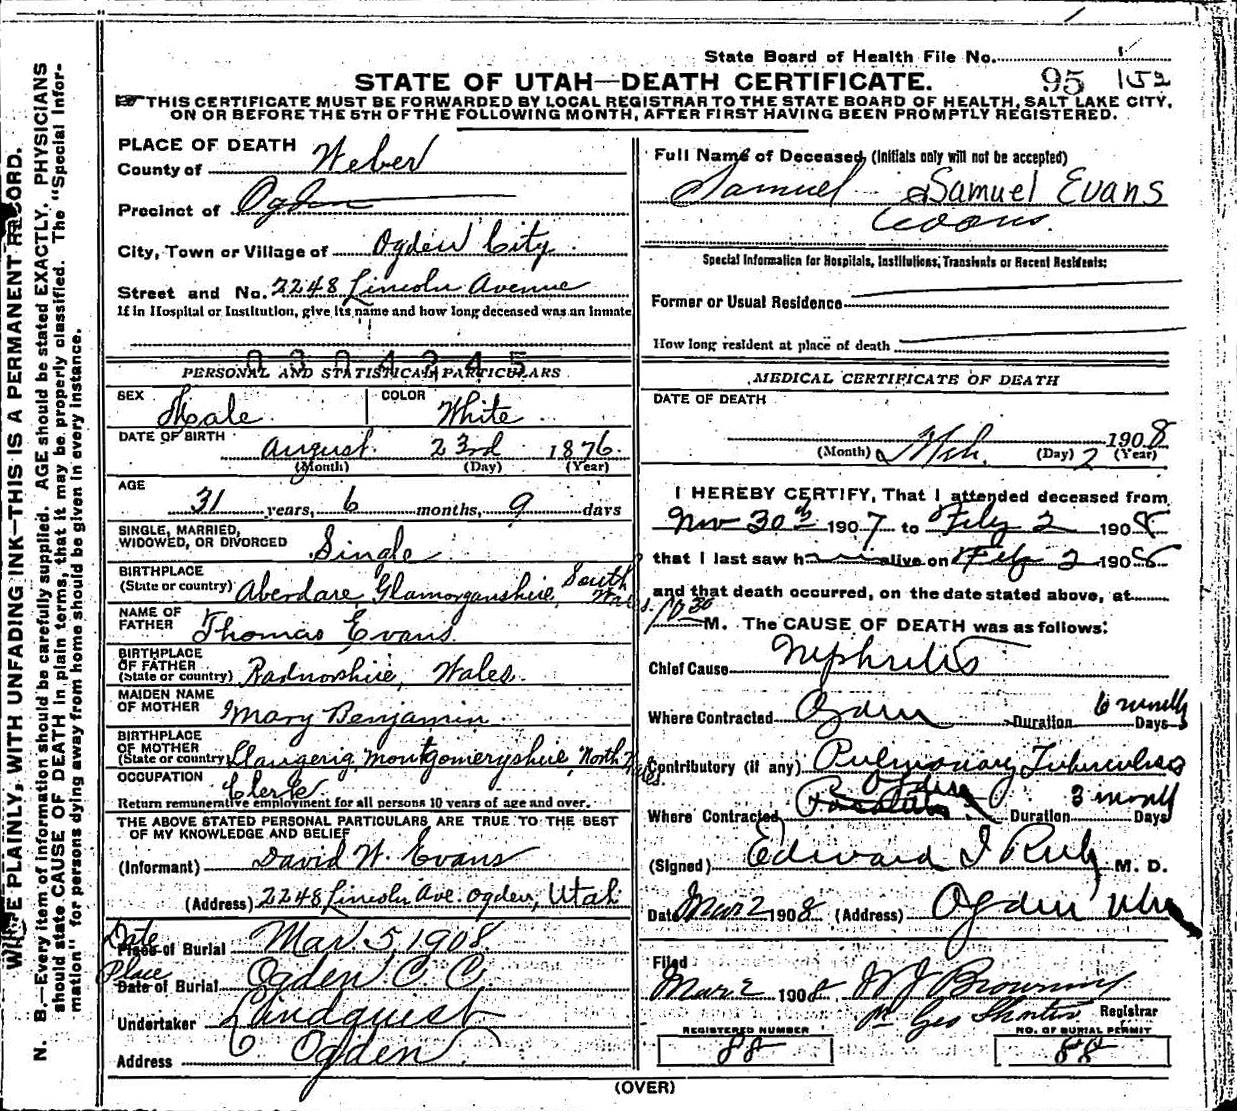 State Board of Health File No.
95 152
STATE OF UTAH—DEATH CERTIFICATE.
THIS CERTIFICATE MUST BE FORWARDED BY LOCAL REGISTRAR TO THE STATE BOARD OF HEALTH, SALT LAKE CITY,
ON OR BEFORE THE 5TH OF THE FOLLOWING MONTH, AFTER FIRST HAVING BEEN PROMPTLY REGISTERED.
PLACE OF DEATH
County of Weber
Precinct of Ogden
City, Town or Village of Ogden City
Street and No. 2248 Lincoln Avenue
If in Hospital or Institution, give its name and how long deceased was an inmate
0304245
PERSONAL AND STATISTICAL PARTICULARS
SEX Male COLOR White
DATE OF BIRTH August 23rd 1876.
(Month) (Day) (Year)
AGE
31 years, 6 months, 9 days
SINGLE, MARRIED,
WIDOWED, OR DIVORCED Single
BIRTHPLACE
(State or country) Aberdare Glamorganshire, South Wales.
NAME OF
FATHER Thomas Evans.
BIRTHPLACE
OF FATHER
(State or country) Radnorshire, Wales.
MAIDEN NAME
OF MOTHER Mary Benjamin
BIRTHPLACE
OF MOTHER
(State or country) Llangerig, Montgomeryshire, North Wales.
OCCUPATION Clerk
Return remunerative employment for all persons 10 years of age and over.
THE ABOVE STATED PERSONAL PARTICULARS ARE TRUE TO THE BEST
OF MY KNOWLEDGE AND BELIEF
(Informant) David W. Evans
(Address) 2248 Lincoln Ave. Ogden, Utah
Date
Place of Burial Mar. 5, 1908.
Place
Date of Burial Ogden C. C.
Undertaker Lindquist
Address Ogden
Full Name of Deceased (Initials only will not be accepted)
Samuel Samuel Evans
Evans.
Special Information for Hospitals, Institutions, Transients or Recent Residents:
Former or Usual Residence
How long resident at place of death
MEDICAL CERTIFICATE OF DEATH
DATE OF DEATH
Mch. 2 1908
(Month) (Day) (Year)
I HEREBY CERTIFY, That I attended deceased from
Nov 30th 1907 to Feby 2 1908
that I last saw h alive on Feby 2 1908
and that death occurred, on the date stated above, at
10 30 M. The CAUSE OF DEATH was as follows:
Chief Cause Nephritis
Where Contracted Ogden Duration 6 months Days
Contributory (if any) Pulmonary Tuberculosis
Ogden
Where Contracted Duration 3 month Days
(Signed) Edward I Rich M. D.
Date Mar 2 1908 (Address) Ogden Utah
Filed
Mar 2 1908 W J Browning
Registrar
REGISTERED NUMBER
88
NO. OF BURIAL PERMIT
88
(OVER)
N. B.—Every item of information should be carefully supplied. AGE should be stated EXACTLY. PHYSICIANS
should state CAUSE OF DEATH in plain terms, that it may be properly classified. The "Special Infor-
mation" for persons dying away from home should be given in every instance.
WRITE PLAINLY, WITH UNFADING INK—THIS IS A PERMANENT RECORD.